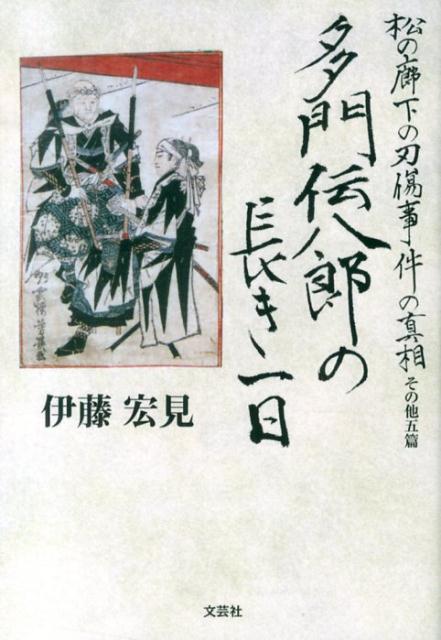 松の廊下の刃傷事件の真相 その他五篇
多門伝八郎の
長き一日
伊藤 宏見
文芸社